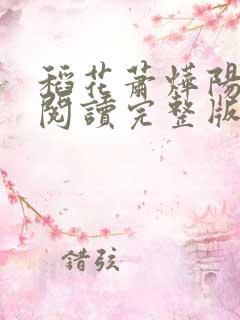 稻花蕭燁陽
閱讀完整版
錯弦